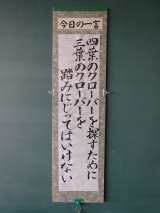 今日の一言
四葉のクローバーを探すために
三葉のクローバーを
踏みにじってはいけない